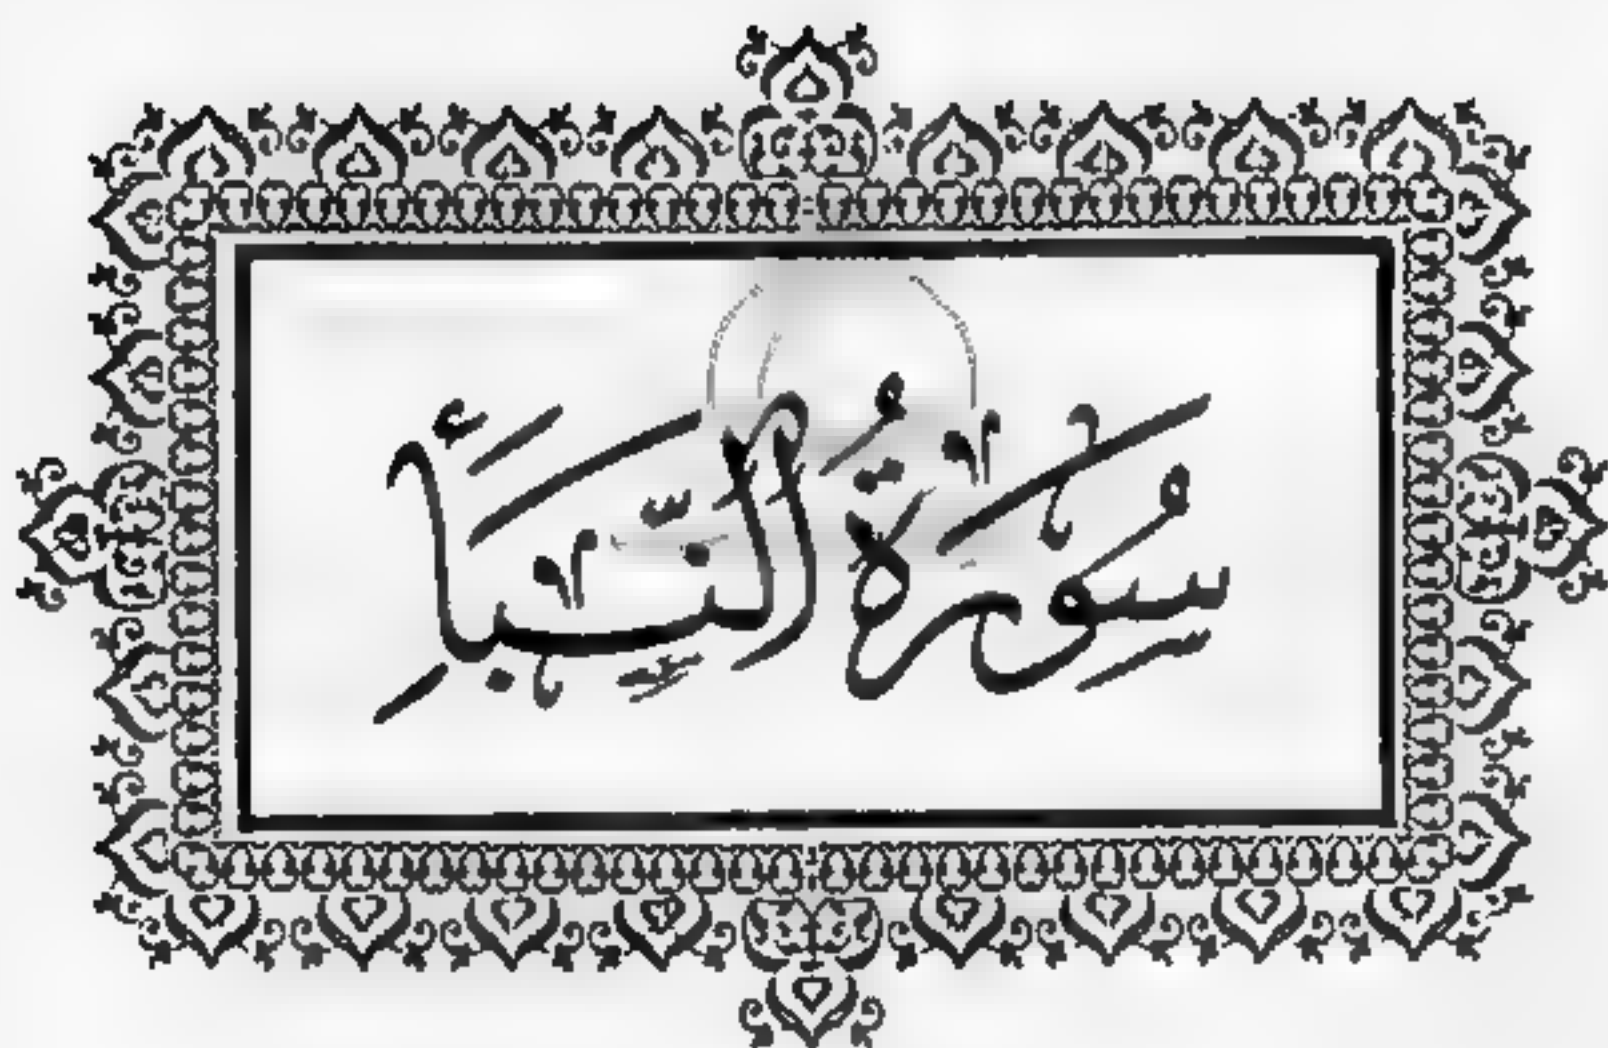 سُورَةُ النَّبَأِ